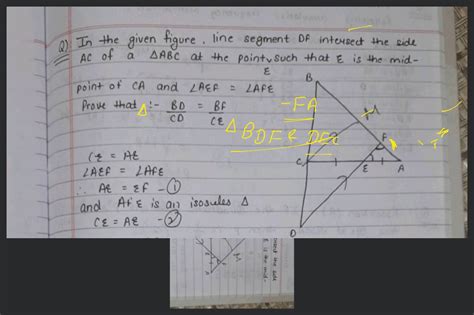 Q) In the given figure, line segment DF intersect the side
AC of a ΔABC at the point, such that E is the mid-
E
point of CA and ∠AEF = ∠AFE
Prove that Δ :- BD/CD = BF/CE
-FA
ΔBDF &
CE = AE
∠AEF = ∠AFE
∴ AE = EF - ①
and AFE is an isosules Δ
CE = AE - ②
B
M
F
C
E
A
D